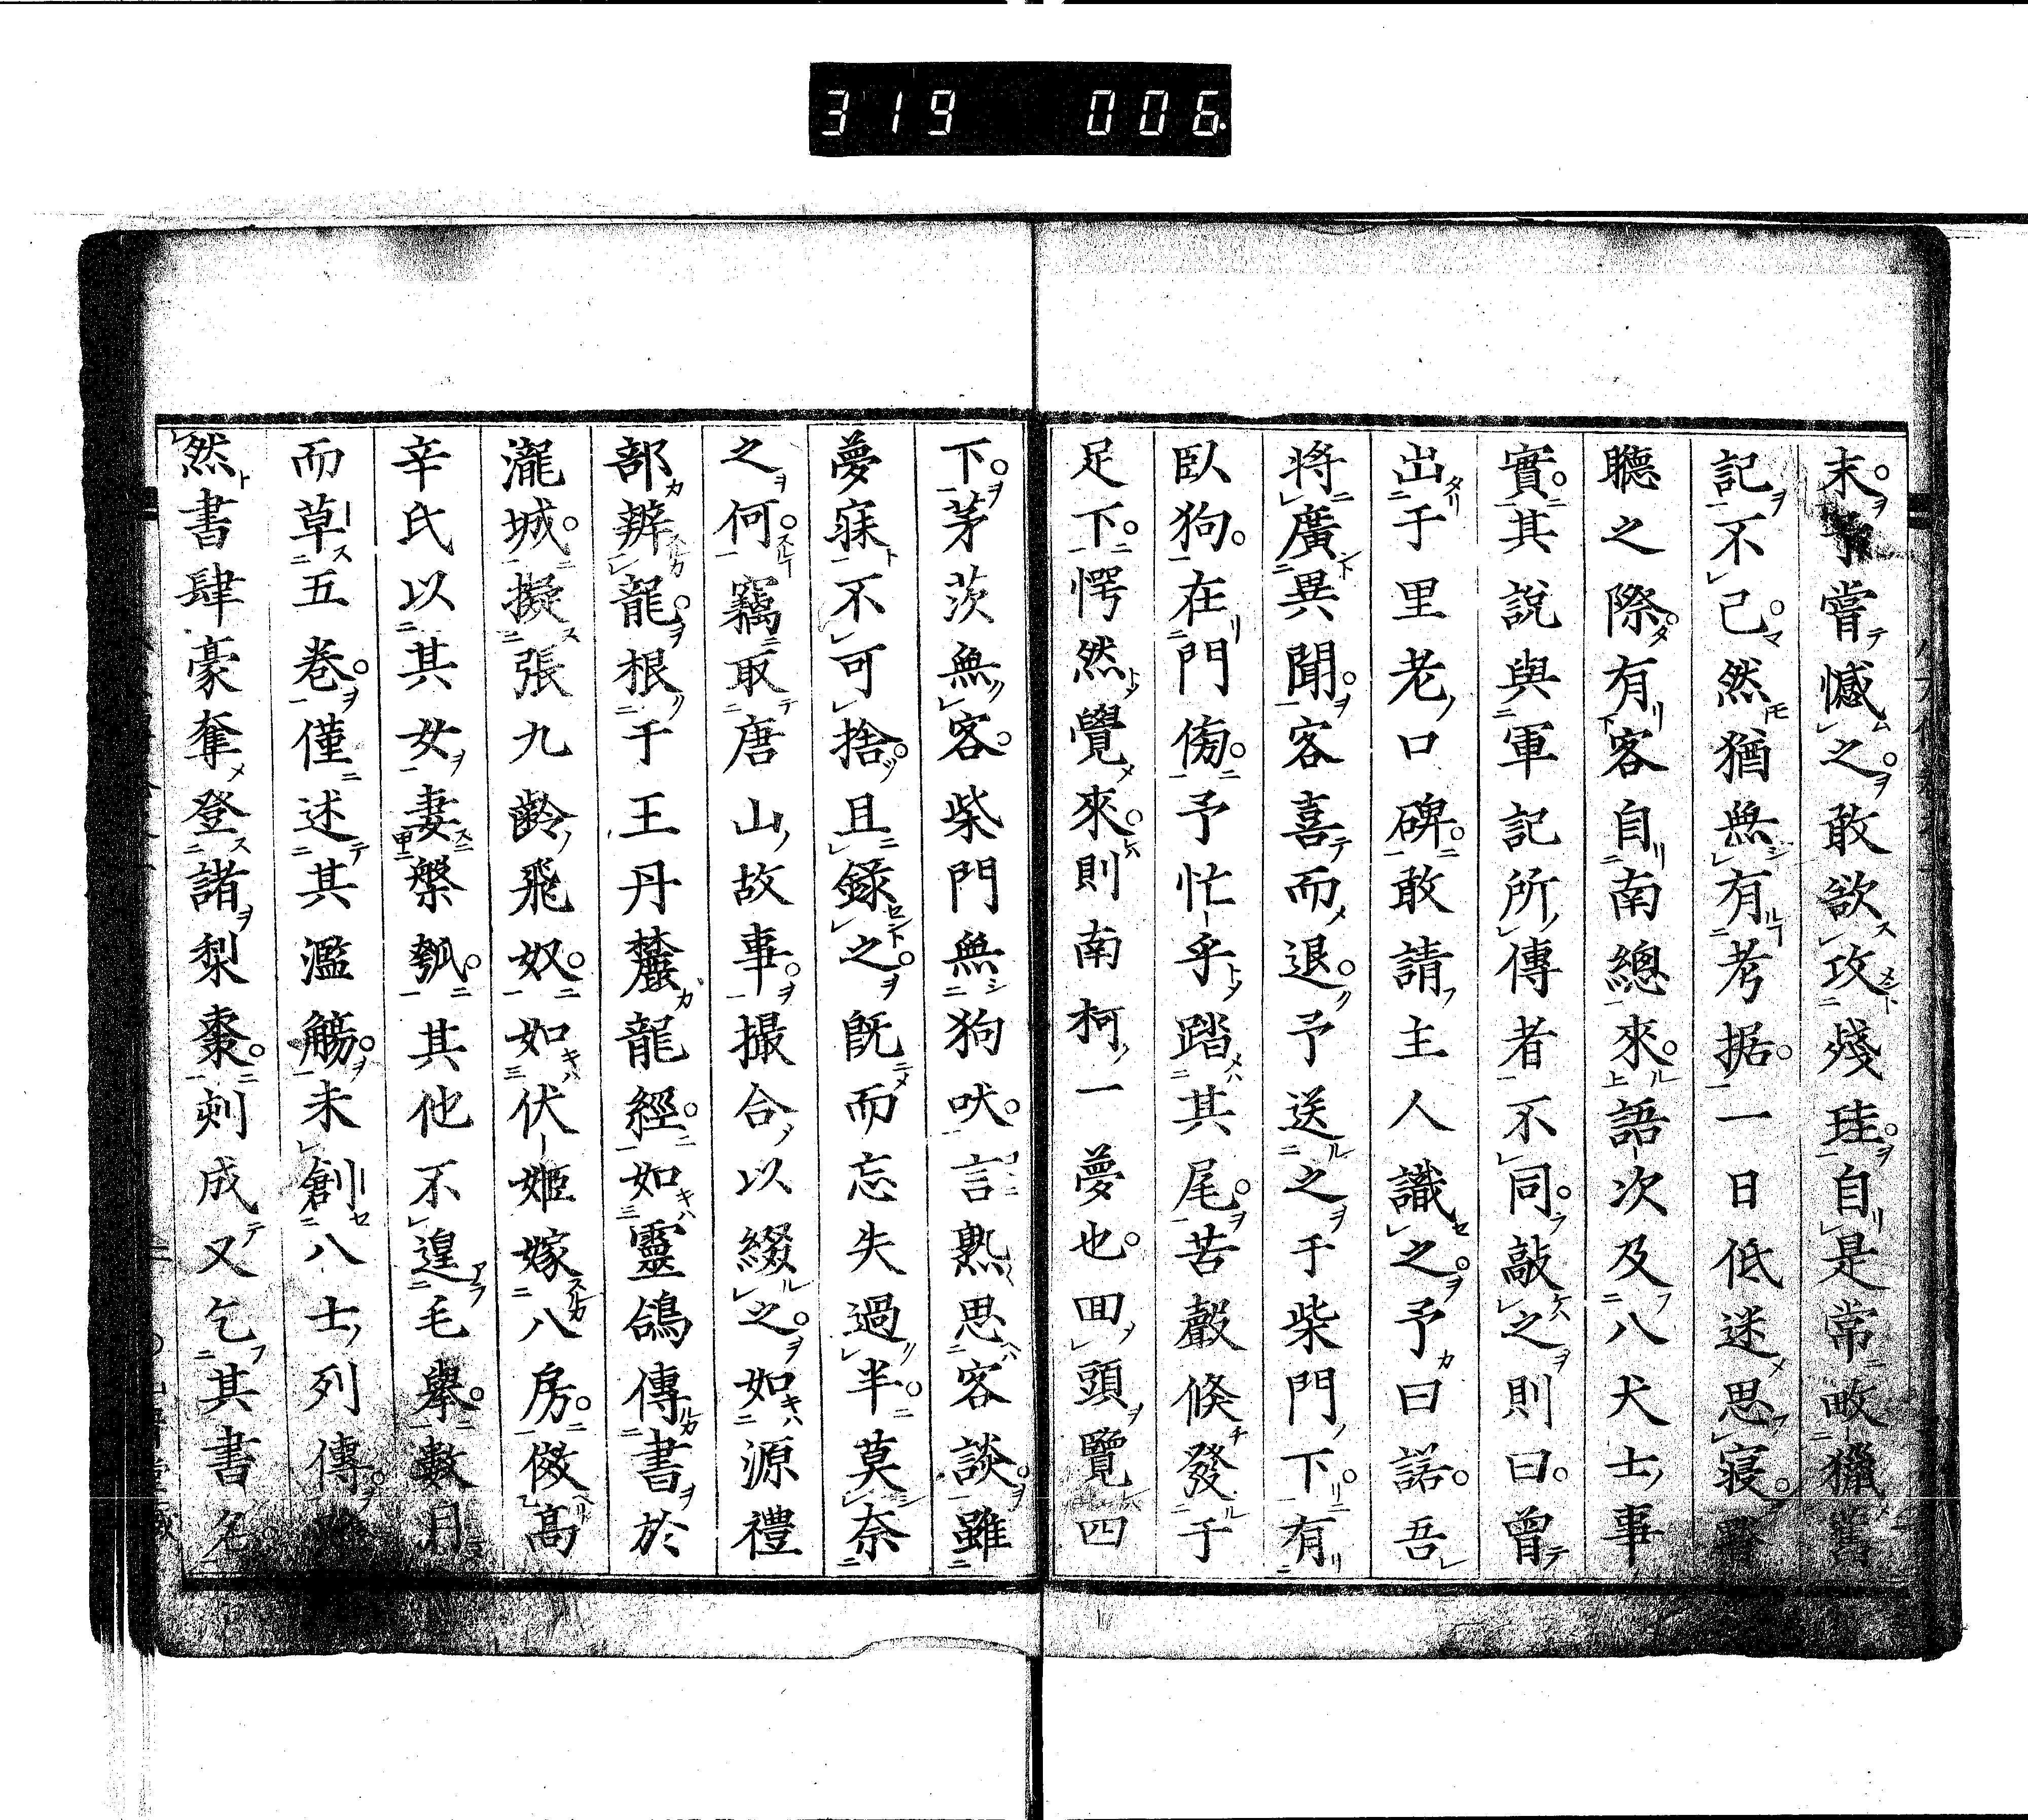 319 006
末。予嘗憾之。敢欲攻殘珪。自是常畋獵舊
記不已。然猶無有考据。一日低迷思寢。
聽之際。有客自南總來。語次及八犬士事
實。其說與軍記所傳者不同。敲之則曰。曾
出于里老口碑。敢請主人識之。予曰諾。吾
將廣異聞。客喜而退。予送之于柴門下。有
臥狗。在門傍。予忙乎踏其尾。苦聲倏發于
足下。愕然覺來。則南柯一夢也。回頭覽四
下。茅茨無客。柴門無狗吠。言熟思客談。雖
夢寐不可捨。且錄之。既而忘失過半。莫奈
之何。竊取唐山故事。撮合以綴之。如源禮
部辨龍。根于王丹麓龍經。如靈鴿傳書於
瀧城。擬張九齡飛奴。如伏姬嫁八房。傚高
辛氏以其女妻槃瓠。其他不遑毛舉。數月
而草五卷。僅述其濫觴。未創八士列傳。
然書肆豪奪登諸梨棗。刻成又乞其書名。